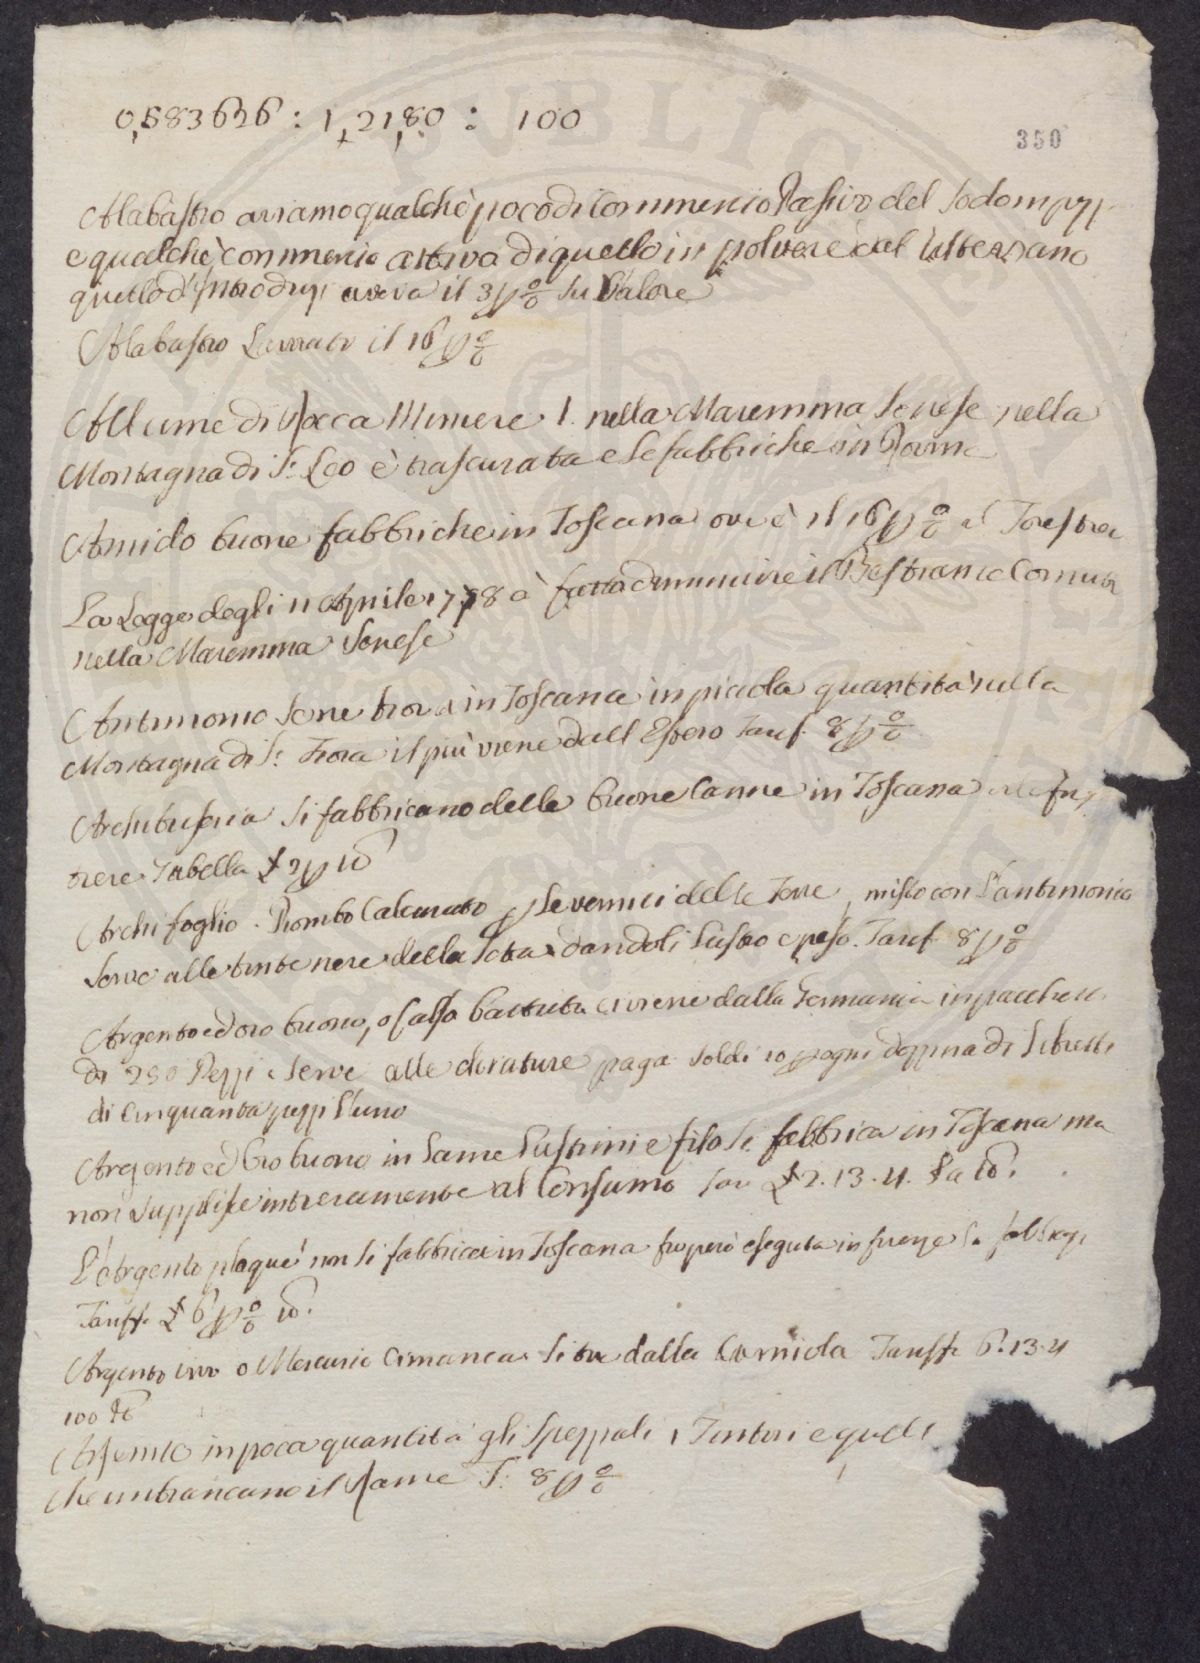 0,583626 : 1,2180 : 100
350
Alabastro aviamo qualche poco di Commercio Passivo del Sodo in pezzi
e qualche commercio attivo di quello in polvere del Volterrano
quello d'Introduzi aveva il 3 p % Su Valore
Alabastro Lavorato il 16 p %
Allume di Rocca Miniere 1. nella Maremma Senese nella
Montagna di S: Leo è trascurata e le fabbriche in Roma
Amido buone fabbriche in Toscana ove è il 16 p % al Forestier
La Legge degli 11 Aprile 1778 à fatto diminuire il Bestiame Cornuto
nella Maremma Senese
Antimonio Se ne trova in Toscana in picciola quantità nella
Montagna di S: Fiora il più viene dall Estero Tarif. 8 p %
Archibuseria Si fabbricano delle buone Canne in Toscana
Tabella £ 2 p lb
Archifoglio. Piombo Calcinato p le vernici delle Terre, misto con l'antimonio
Serve alle tinte nere della Seta dandoli Lustro e peso. Tarif 8 p %
Argento ed oro buono, o falso battuto ci viene dalla Germania in pacchetti
di 250 Pezzi Serve alle dorature paga Soldi 10 p ogni dozzina di Libretti
di Cinquanta pezzi l'uno
Argento ed Oro buono in Lame Lustrini e filo Si fabbrica in Toscana ma
non Supplisce intieramente al Consumo £ 2.13.4. la lb.
L'Argento plaqué non Si fabbrica in Toscana fu però eseguita in Firenze
Tariff. £ 6 p % lb.
Argento vivo o Mercurio Ci manca Si tra dalla Carniola Tariff. 6.13.4
100 lb
Arsenico in poca quantità gli Speziali, i Tintori e quelli
che imbiancano il Rame T: 8 p %